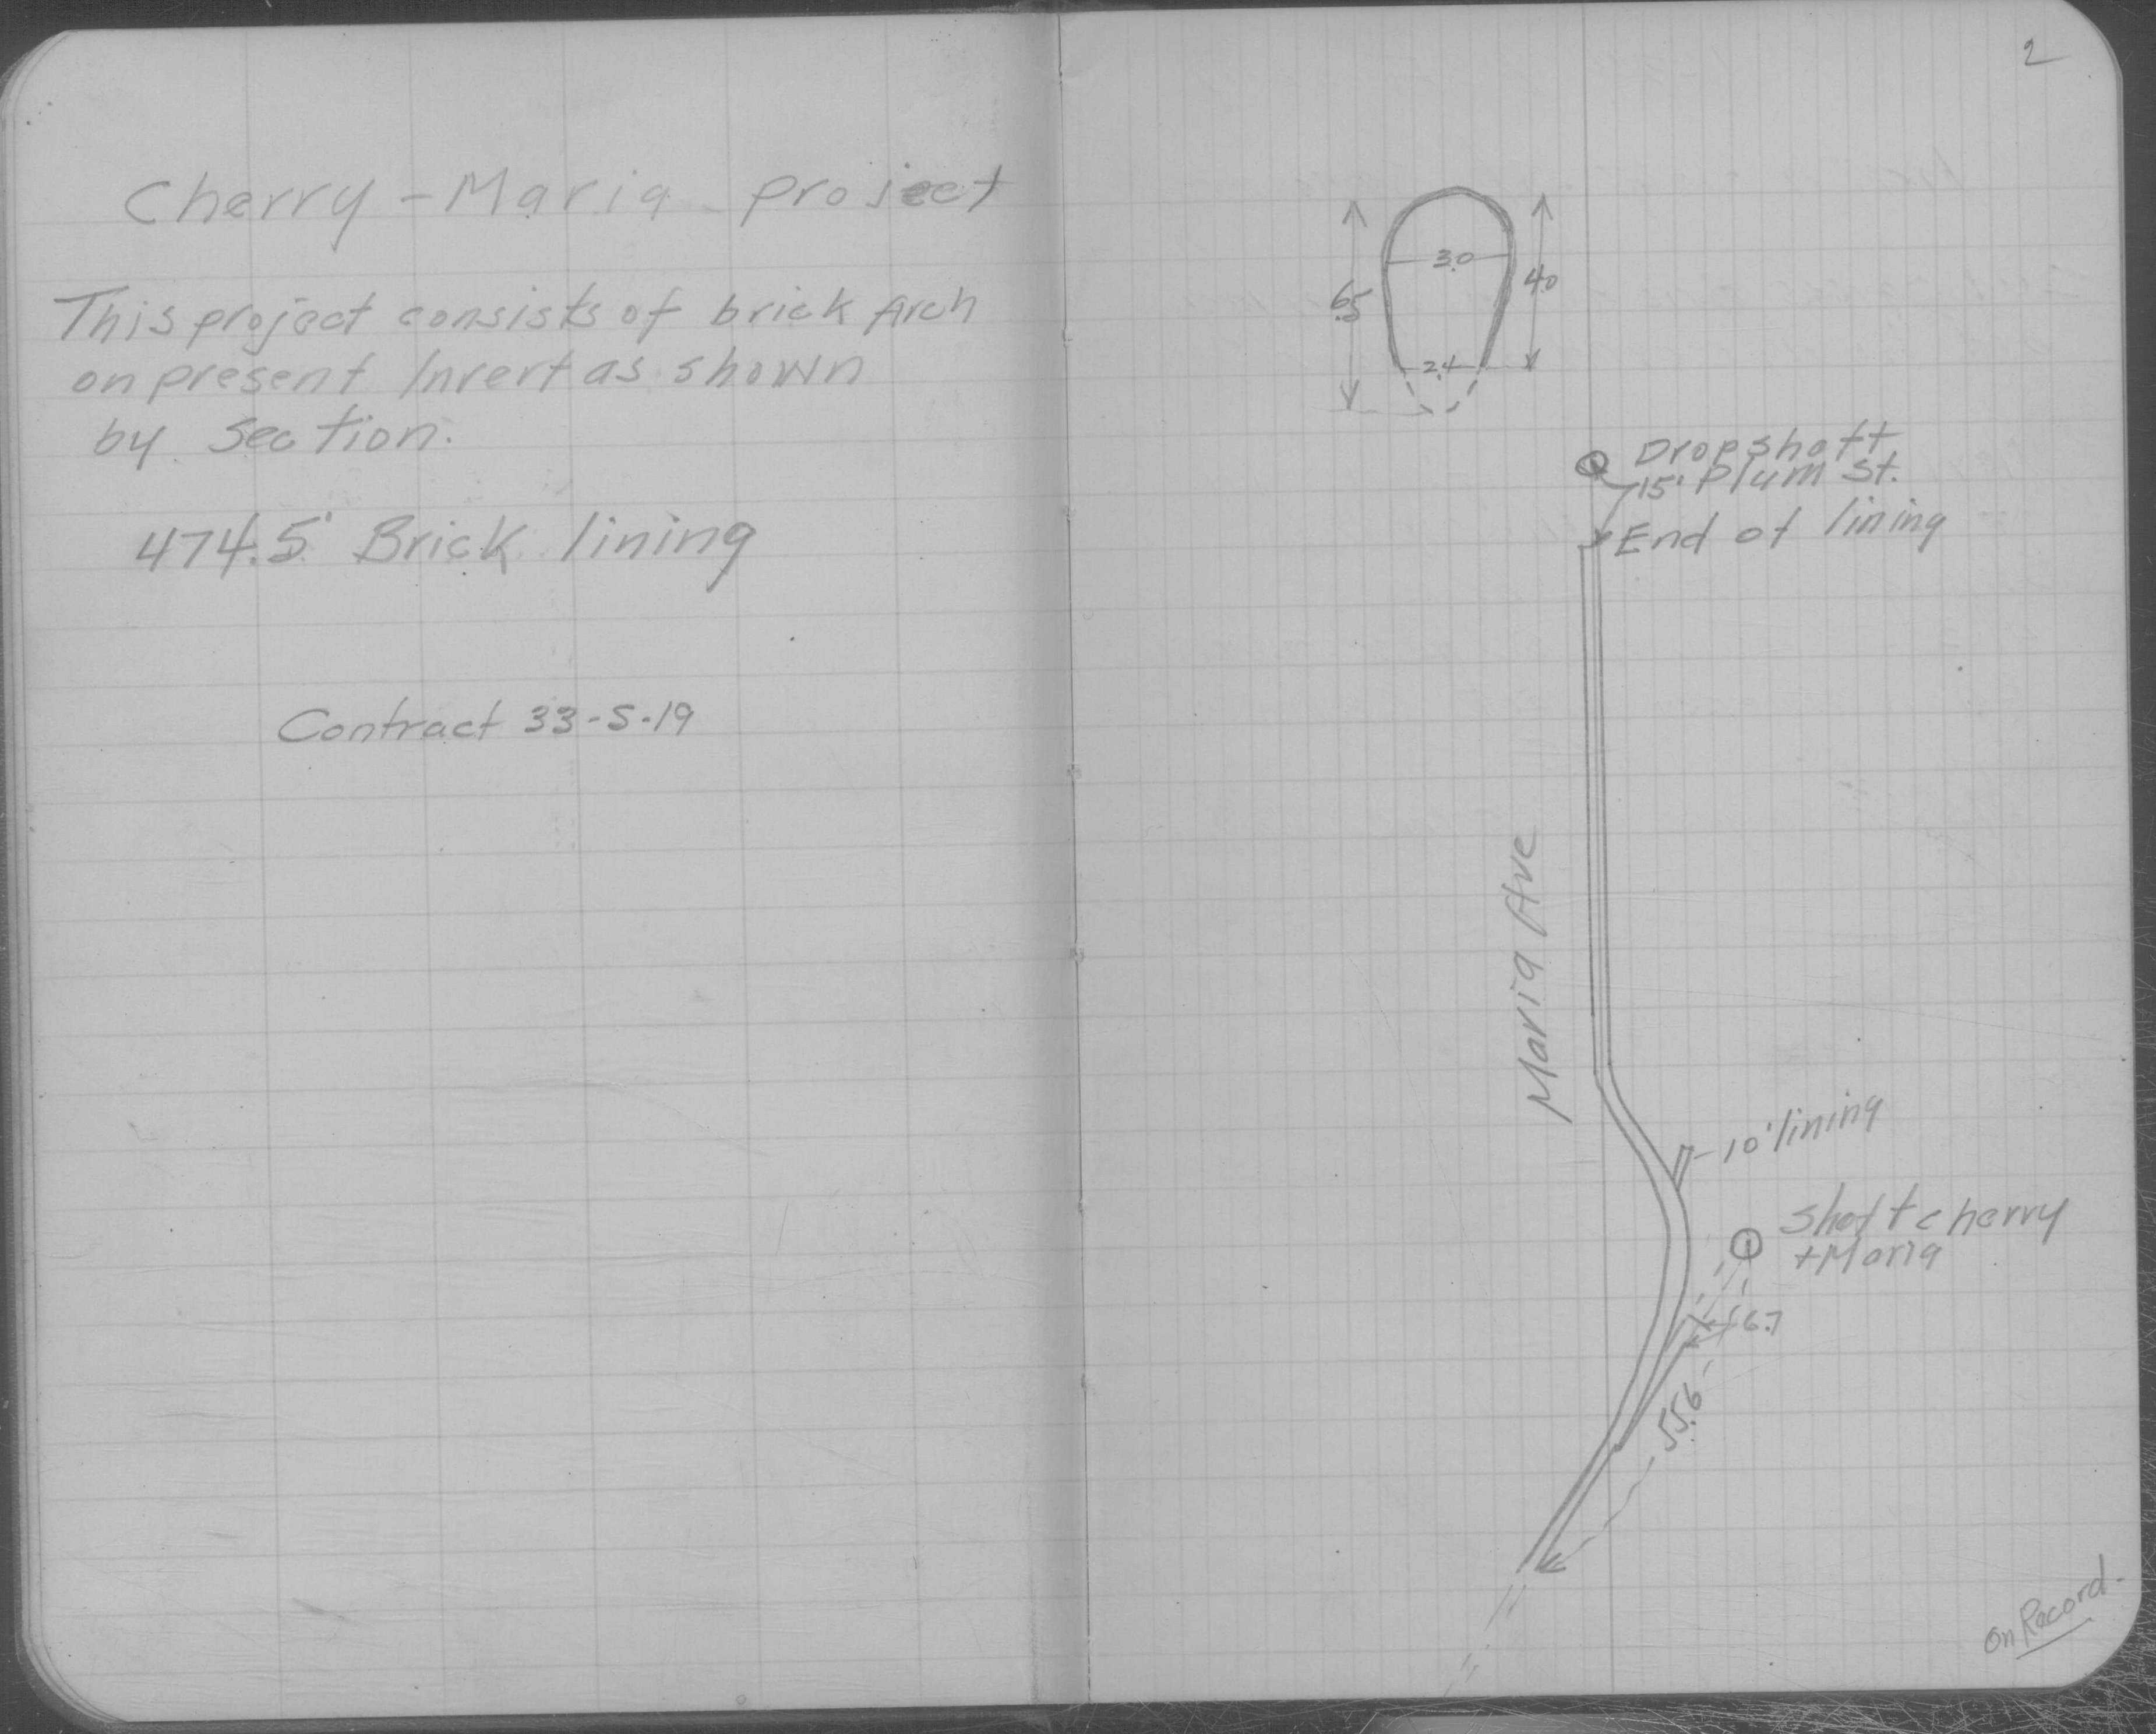 Cherry - Maria project
This project consists of brick Arch
on present Invert as shown
by section.
474.5' Brick lining
Contract 33-S-19
2
3.0
4.0
6.5
2.4
Dropshaft
Plum St.
15'
End of lining
Maria Ave
10' lining
Shaft cherry
+ Maria
6.7
55.6
On Record